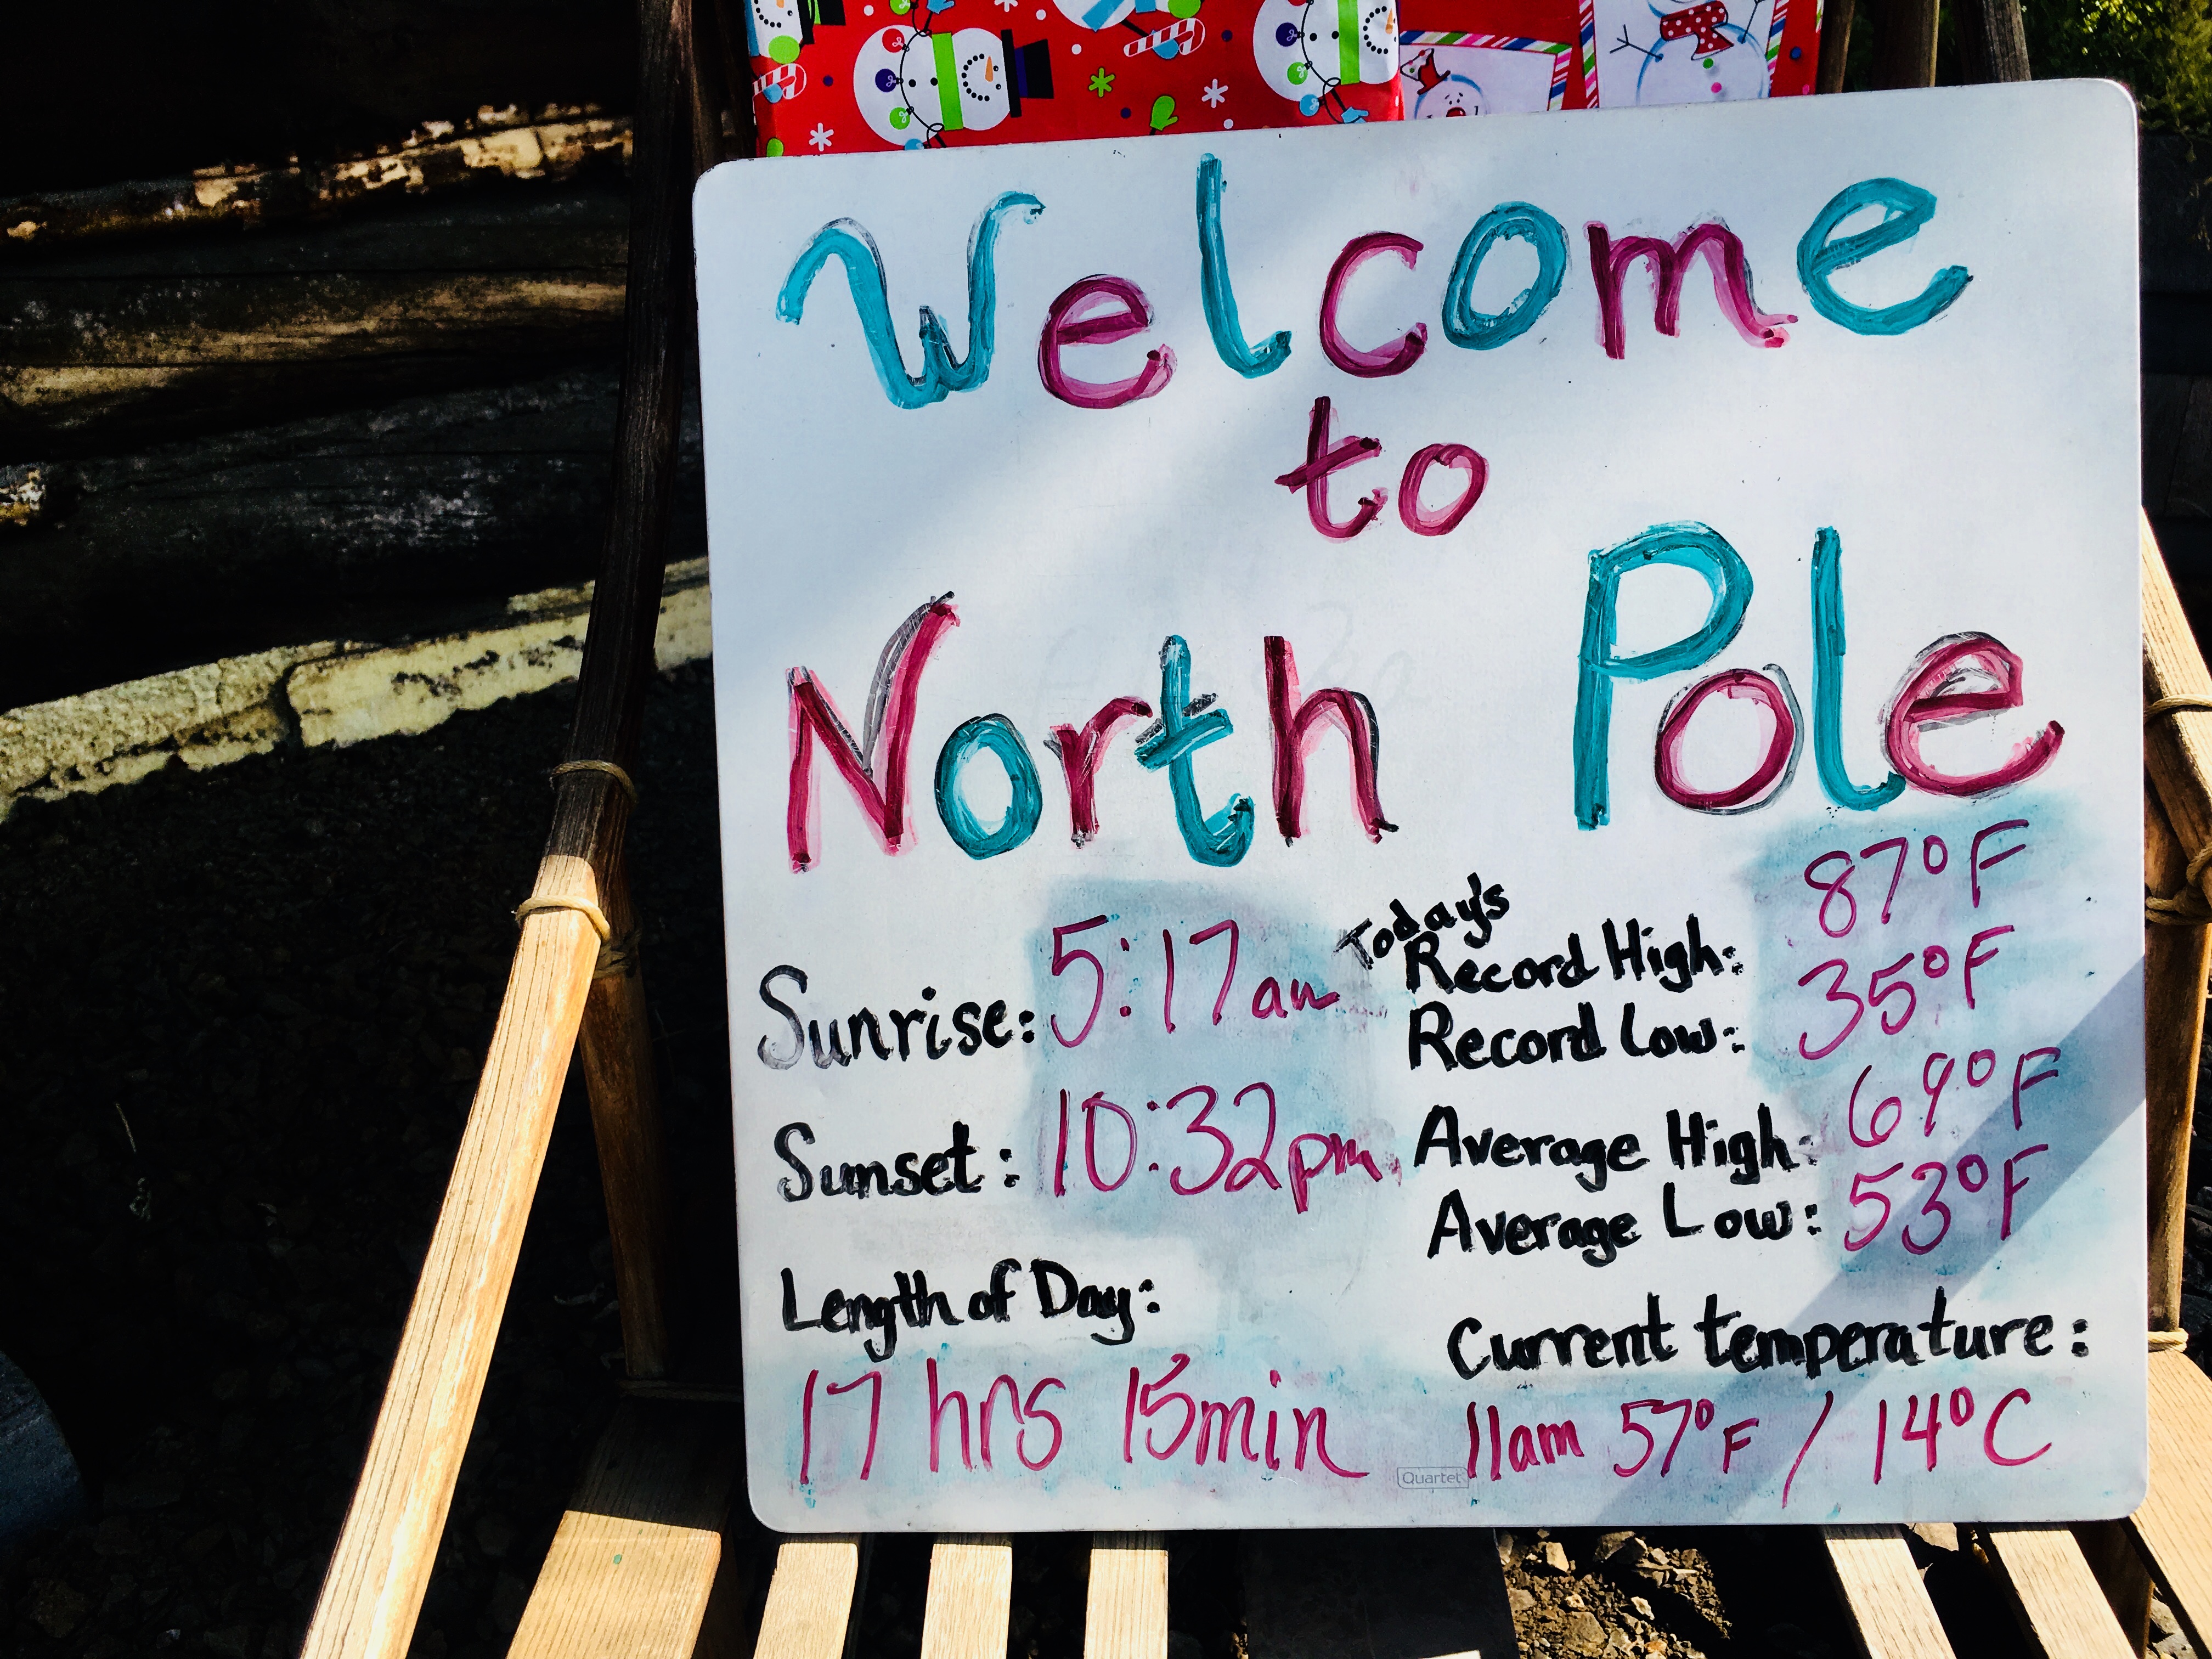 Welcome
to
North Pole
Sunrise: 5:17am
Sunset: 10:32pm
Length of Day:
17 hrs 15min
Today's
Record High: 87°F
Record Low: 35°F
Average High: 69°F
Average Low: 53°F
Current temperature:
11am 57°F / 14°C
Quartet